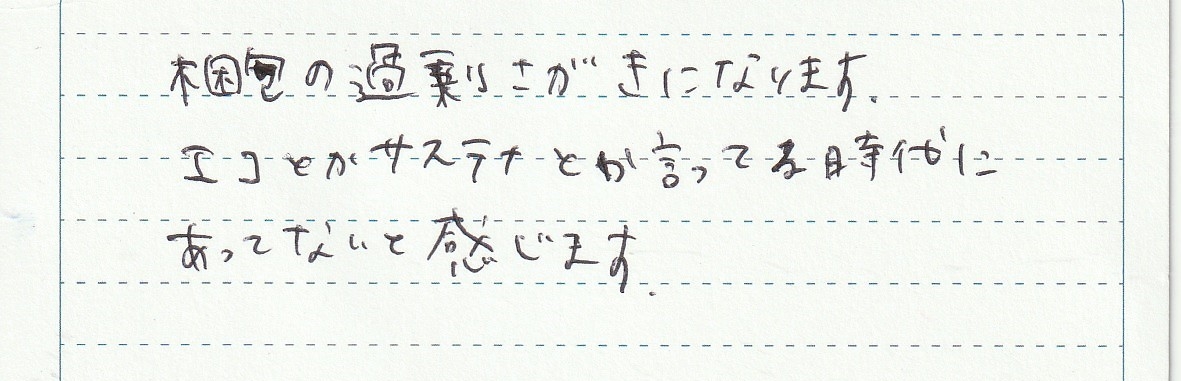 梱包の過剰さがきになります.
エコとかサステナとか言ってる時代に
あってないと感じます.